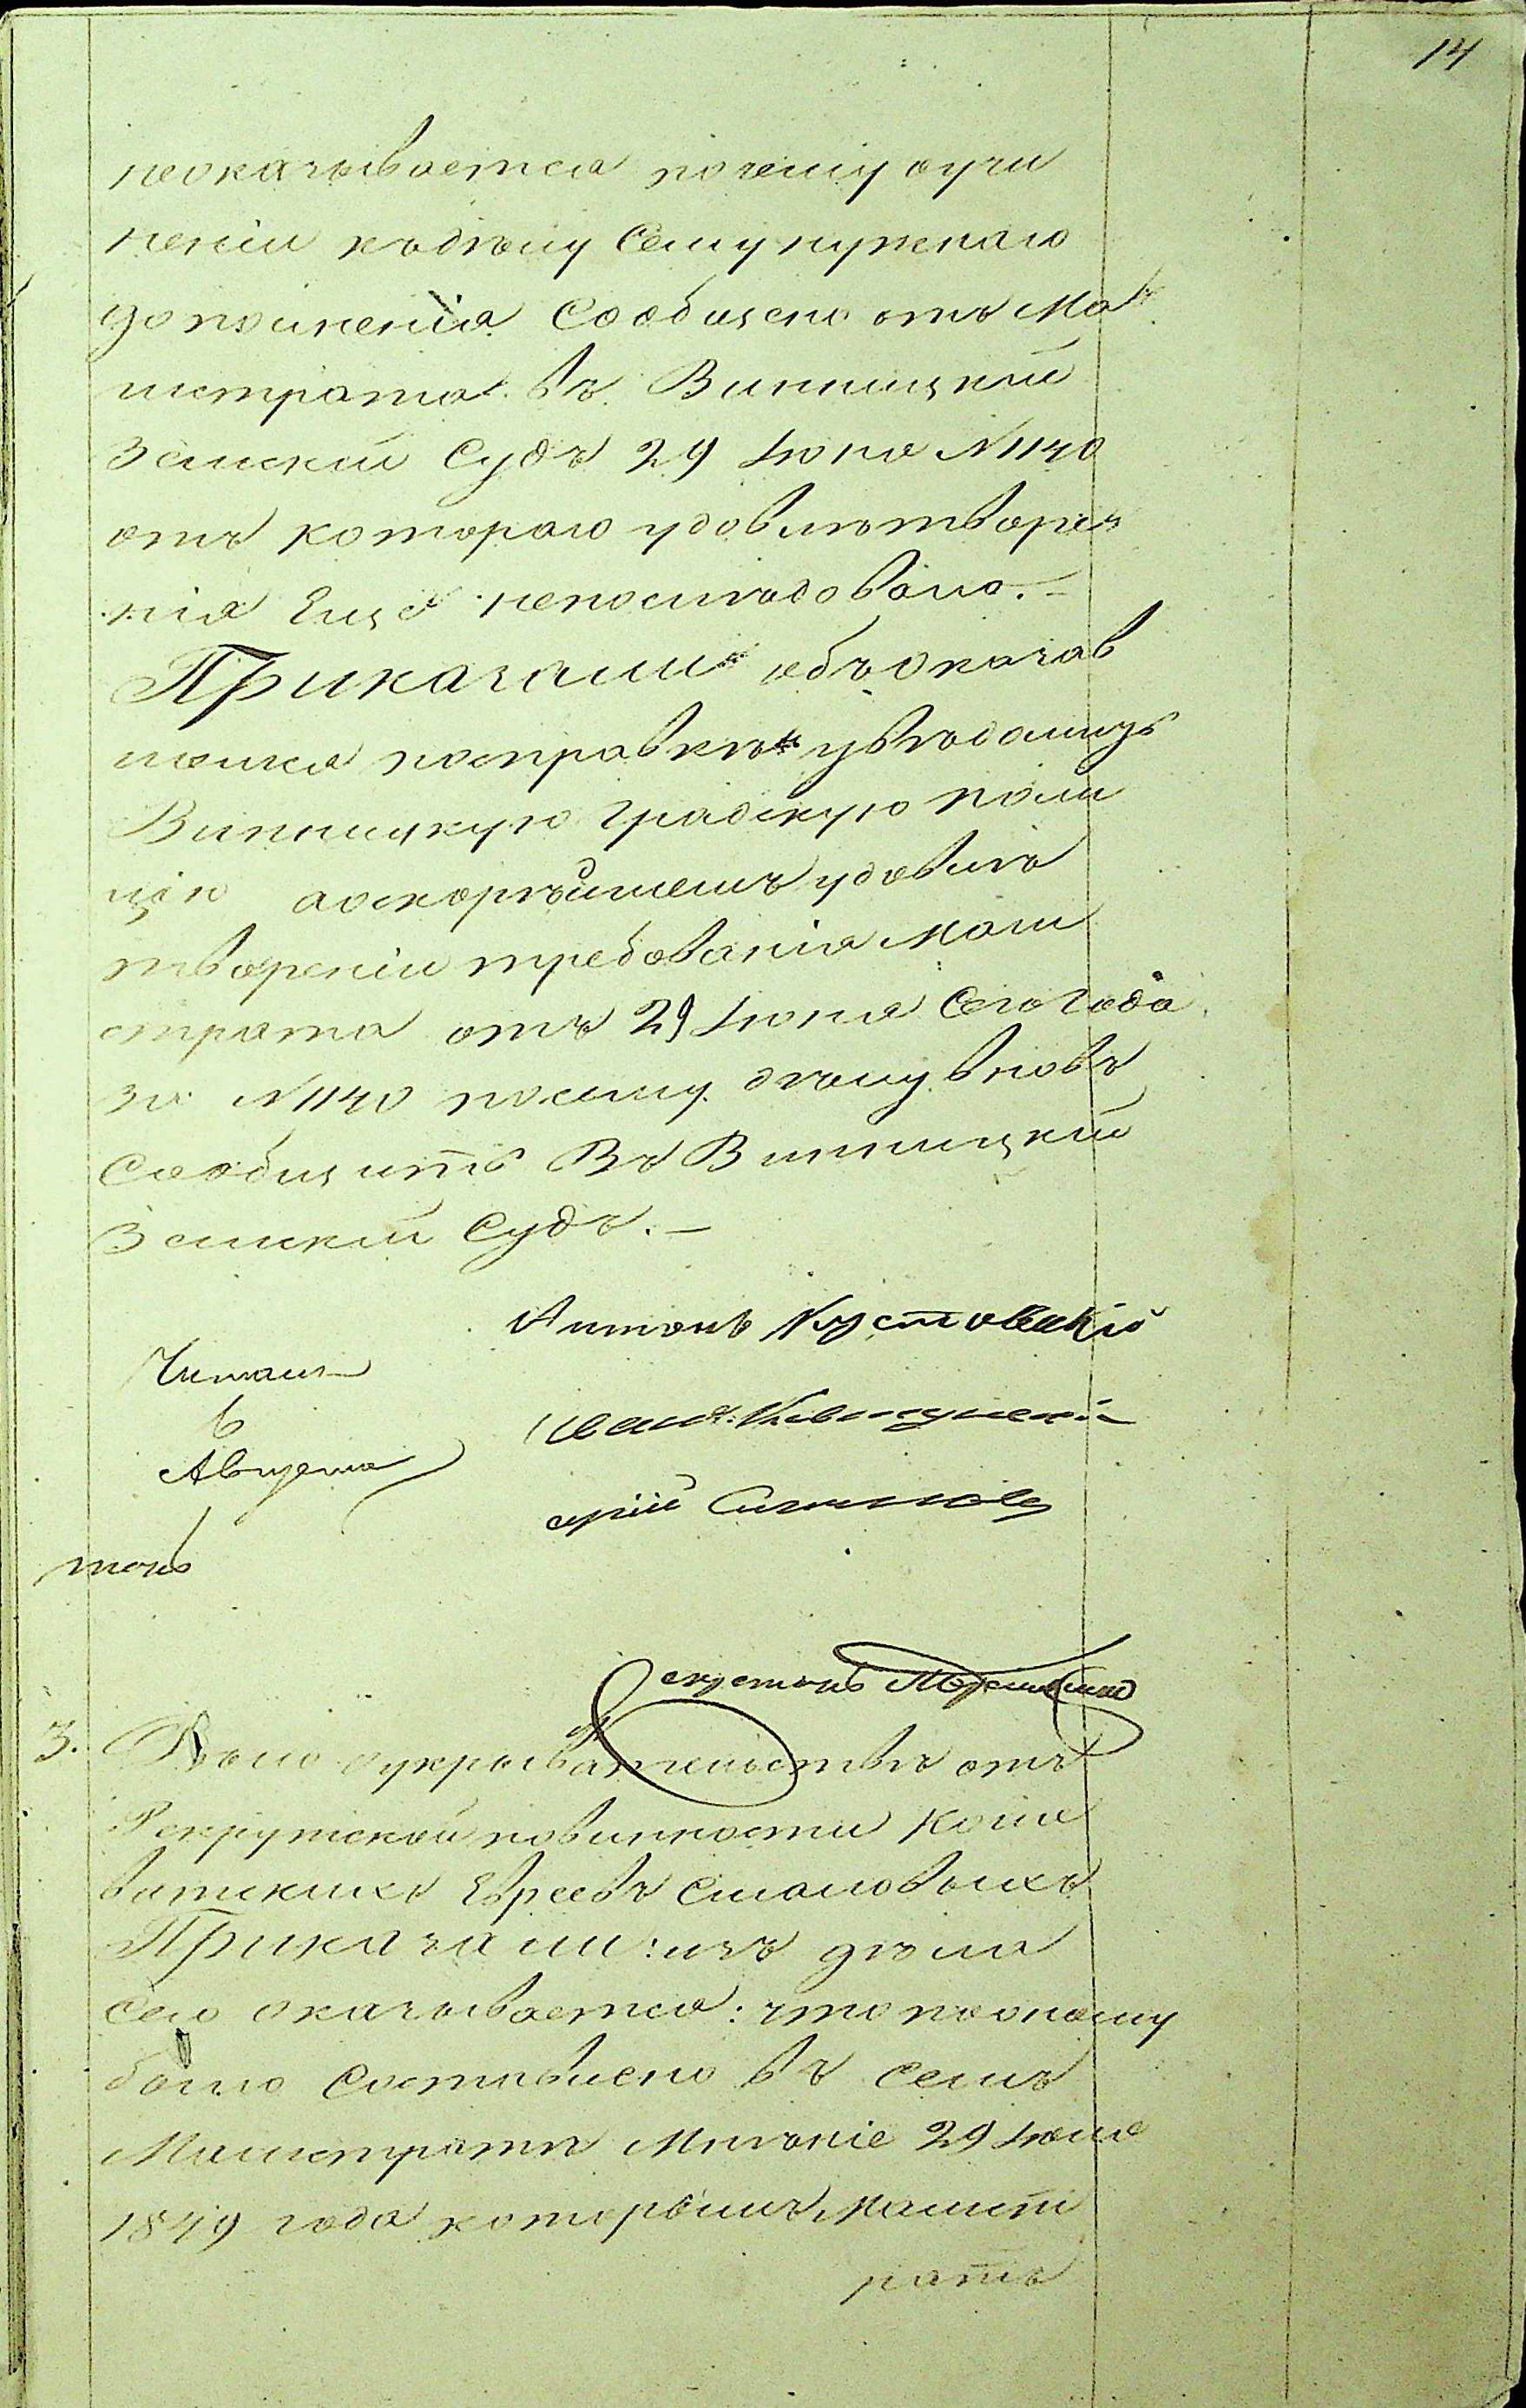 14
неоказывается почему оучи
неніи къдѣлу Сему нужнаго
дополненія Сообщено отъ Ма
гистрата въ Винницкій
Земскій Судъ 29 Іюня N 1140
отъ котораго удовлѣтворе
нія Еще непослѣдовало.—
Приказали объоказав
шемся посправкѣ увѣдомить
Винницкую градскую поли
цію а оскорѣйшемъ удовлѣ
твореніи требованія Маги
страта отъ 29 Іюня Сего года
за N 1140 посему дѣлу вновь
Сообщить Въ Винницкій
Земскій Судъ.—
Антонъ Кустовскій
Читалъ
6
Августа
3. Дѣло оукрывательствѣ отъ
Рекрутской повинности Коше
ватскихъ Евреевъ Смаловыхъ
Приказали: изъ дѣла
сего оказывается: что поонему
было Составлено въ Семъ
Магистратѣ Мнѣніе 29 Іюля
1849 года которымъ Магист
ратъ